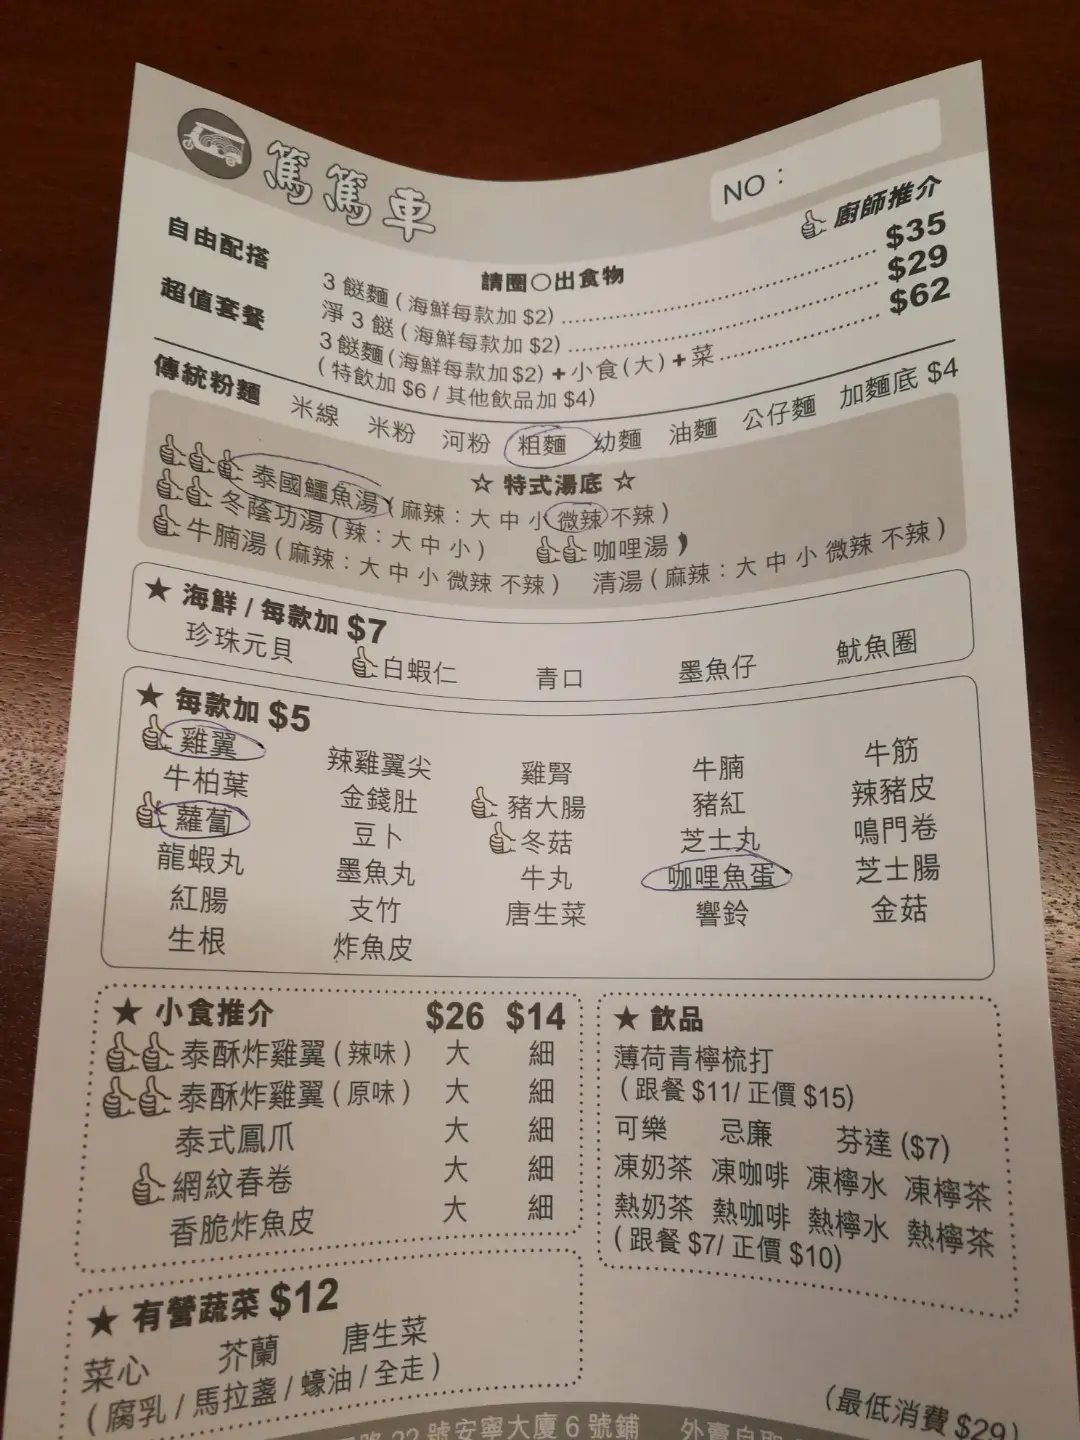 篤篤車
NO：
廚師推介
自由配搭
請圈○出食物
3 餸麵 ( 海鮮每款加 $2) $35
淨 3 餸 ( 海鮮每款加 $2) $29
超值套餐
3 餸麵 ( 海鮮每款加 $2) + 小食 ( 大 ) + 菜 $62
( 特飲加 $6 / 其他飲品加 $4)
傳統粉麵 米線 米粉 河粉 粗麵 幼麵 油麵 公仔麵 加麵底 $4
☆ 特式湯底 ☆
泰國鱷魚湯 ( 麻辣：大 中 小 微辣 不辣 )
冬蔭功湯 ( 辣：大 中 小 ) 咖哩湯
牛腩湯 ( 麻辣：大 中 小 微辣 不辣 ) 清湯 ( 麻辣：大 中 小 微辣 不辣 )
★ 海鮮 / 每款加 $7
珍珠元貝 白蝦仁 青口 墨魚仔 魷魚圈
★ 每款加 $5
雞翼 辣雞翼尖 雞腎 牛腩 牛筋
牛柏葉 金錢肚 豬大腸 豬紅 辣豬皮
蘿蔔 豆卜 冬菇 芝士丸 鳴門卷
龍蝦丸 墨魚丸 牛丸 咖哩魚蛋 芝士腸
紅腸 支竹 唐生菜 響鈴 金菇
生根 炸魚皮
★ 小食推介 $26 $14
泰酥炸雞翼 ( 辣味 ) 大 細
泰酥炸雞翼 ( 原味 ) 大 細
泰式鳳爪 大 細
網紋春卷 大 細
香脆炸魚皮 大 細
★ 飲品
薄荷青檸梳打
( 跟餐 $11/ 正價 $15)
可樂 忌廉 芬達 ($7)
凍奶茶 凍咖啡 凍檸水 凍檸茶
熱奶茶 熱咖啡 熱檸水 熱檸茶
( 跟餐 $7/ 正價 $10)
★ 有營蔬菜 $12
菜心 芥蘭 唐生菜
( 腐乳 / 馬拉盞 / 蠔油 / 全走 )
(最低消費 $29)
22 號安寧大廈 6 號鋪 外賣自取